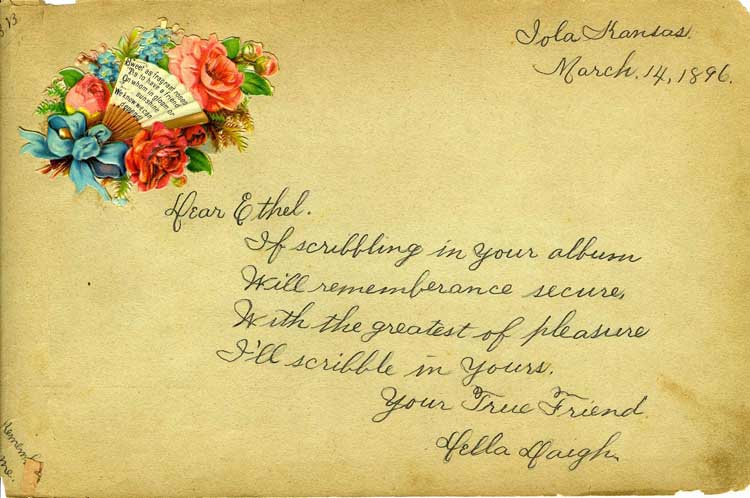 Iola Kansas.
March. 14, 1896.
Sweet as fragrant roses
'Tis to have a friend
On whom in gloom or
sunshine
We know we can
depend
Dear Ethel.
If scribbling in your album
Will rememberance secure,
With the greatest of pleasure
I'll scribble in yours.
Your True Friend.
Della Daigh.
Remem
me.